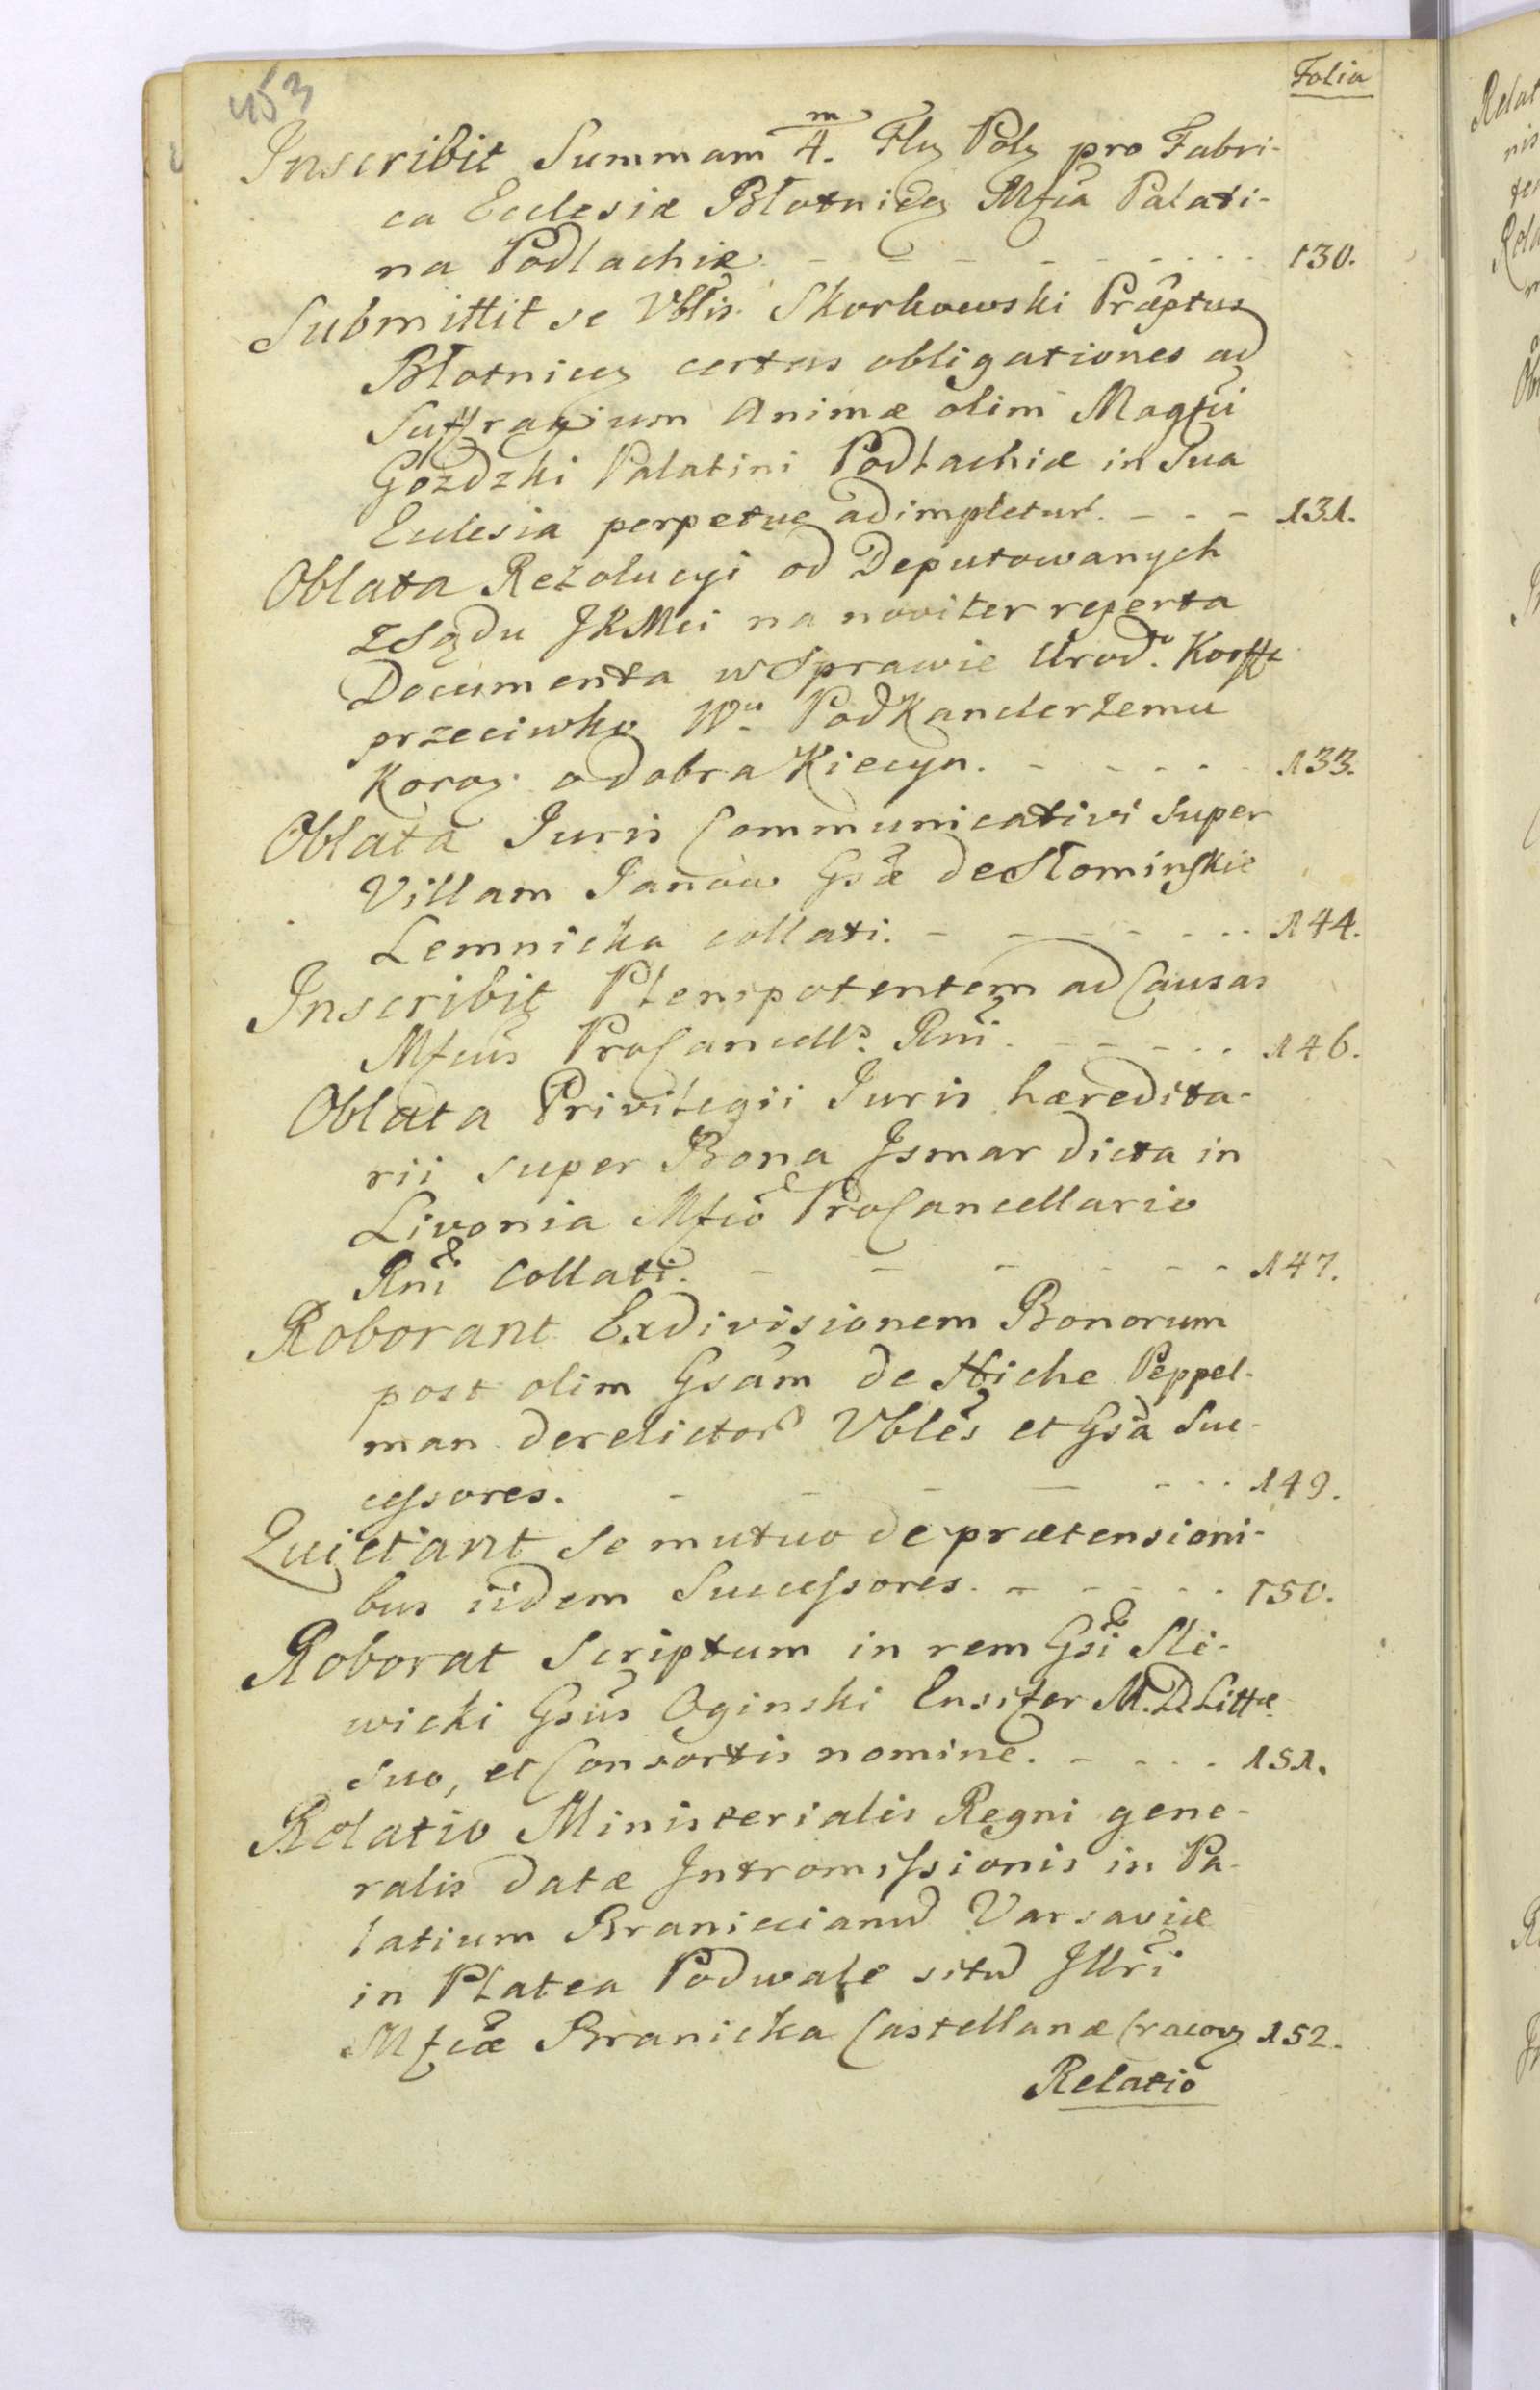 453
Folia
Inscribit Summam 4.m Flg Polg pro Fabri-
ca Ecclesiæ Błotnicg Mfca Palati-
na Podlachiæ. - - - - - - - 130.
Submittit se Vblis Skorkowski Præptus
Błotnicg certas obligationes ad
Suffragium Animæ olim Magfci
Gozdzki Palatini Podlachiæ in Sua
Ecclesia perpetue adimpletur. - - - 131.
Oblata Rezolucyi od Deputowanych
z Sądu JKMci na noviter reperta
Documenta w Sprawie Urod.o Korffa
przeciwko W.u PodKanclerzemu
Korog. o dobra Kiecyn. - - - - - 133.
Oblata Juris Communicativi Super
Villam Janów Gsæ de Słominskie
Lemnicka collati. - - - - - - 144.
Inscribit Plenipotentem ad Causas
Mfcus ProCancells. Rni. - - - - - 146.
Oblata Privilegii Juris hæredita-
rii super Bona Ismar dicta in
Livonia Mfco ProCancellario
Rni Collati. - - - - - - 147.
Roborant Exdivisionem Bonorum
post olim Gsam de Hiche Peppel-
man derelictor Vbles et Gsa Suc-
cessores. - - - - - - 149.
Quietant Se mutuo de prætensioni-
bus iidem Successores. - - - - - 150.
Roborat Scriptum in rem Gsi Sli-
wicki Gsus Oginski Ensifer M.D.Littæ
Suo, et Consortis nomine. - - - - 151.
Relatio Ministerialis Regni gene-
ralis datæ Intromissionis in Pa-
latium Branicianu Varsaviæ
in Platea Podwale situ Jllri
Mfcæ Branicka Castellanæ Cracovg 152.
Relatio